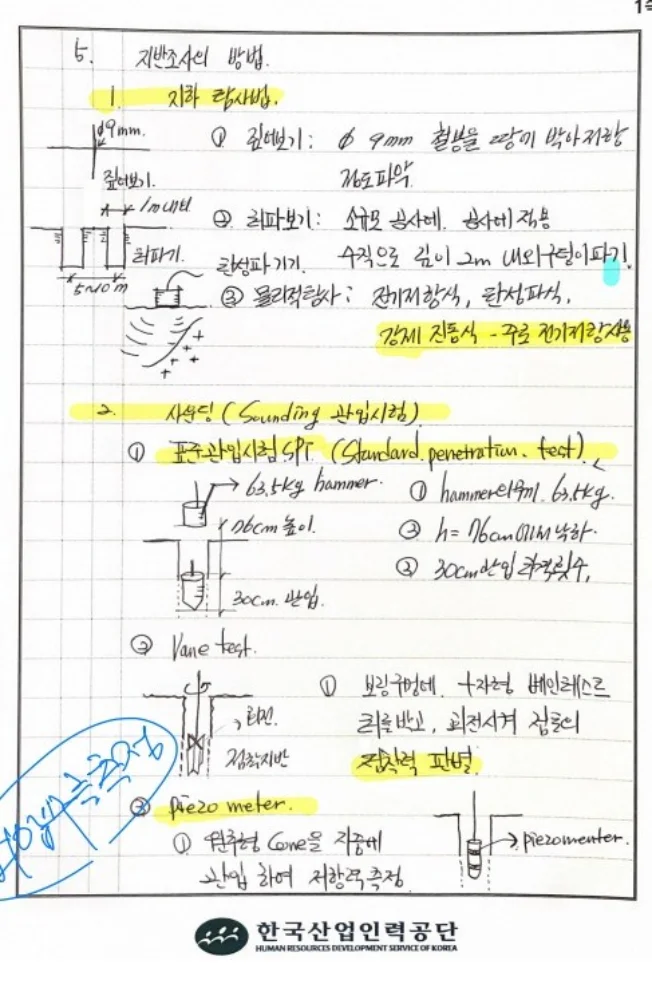 5. 지반조사의 방법.
1. 지하 탐사법.
φ9mm.
짚어보기.
① 짚어보기: φ 9mm 철봉을 땅에 박아 저항
정도파악.
1m 내외
터파기.
5~10m
② 터파보기: 소규모 공사에. 공사에 적용
수직으로 깊이 2m 내외 구덩이 파기.
탄성파기기.
③ 물리적탐사: 전기저항식, 탄성파식,
강제 진동식 - 주로 전기저항사용
2. 사운딩 (Sounding 관입시험)
① 표준관입시험 SPT (Standard. penetration. test)
63.5kg hammer.
76cm 높이.
30cm. 관입.
① hammer의무게. 63.5kg.
② h= 76cm에서 낙하.
③ 30cm관입 타격횟수,
② Vane test.
회전.
점착지반
① 보링구멍에. 十자형 베인테스트
회전시켜 점토의
점착력 판별.
③ piezo meter.
① 원추형 Cone을 지중에
관입 하여 저항력측정
piezomenter.
한국산업인력공단
HUMAN RESOURCES DEVELOPMENT SERVICE OF KOREA